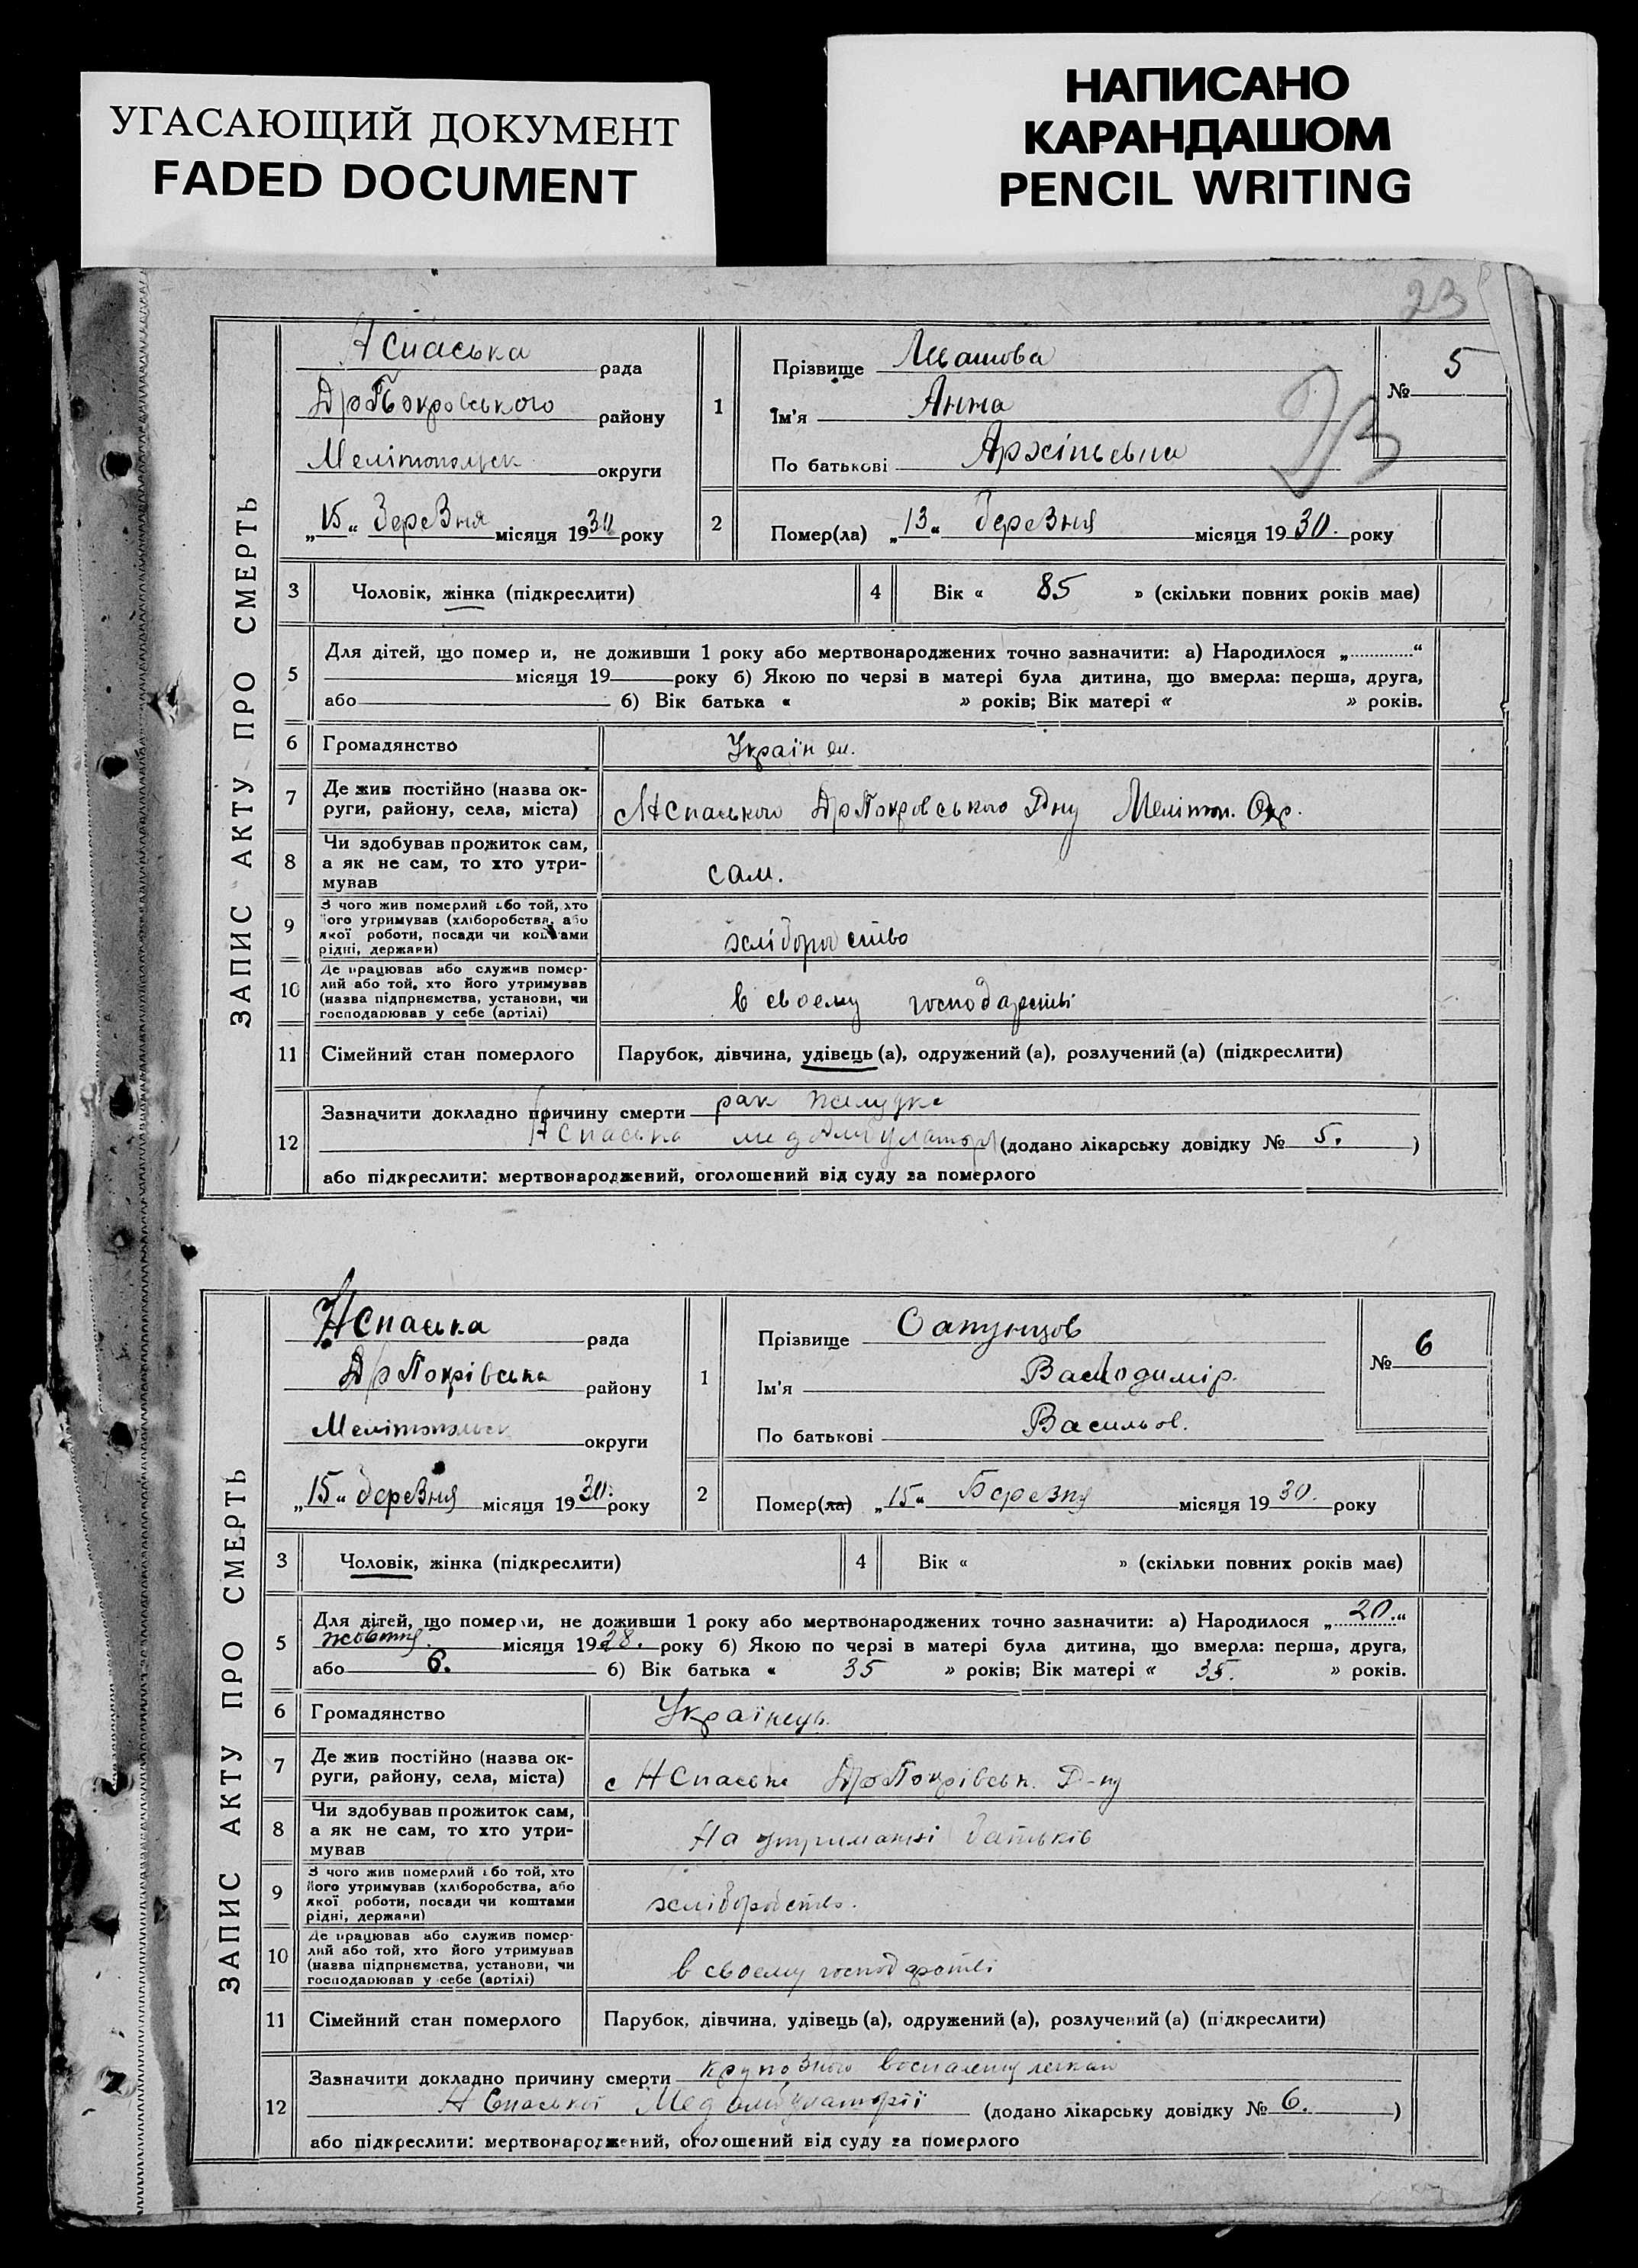 УГАСАЮЩИЙ ДОКУМЕНТ
FADED DOCUMENT
НАПИСАНО
КАРАНДАШОМ
PENCIL WRITING
23
ЗАПИС АКТУ ПРО СМЕРТЬ
Н Спаська рада
Др Покровського району
Мелітопольск округи
„15“ березня місяця 1930 року
1
Прізвище
Ім'я Анна
По батькові Архіпьевна
№ 5
23
2
Помер(ла) „13“ березня місяця 1930. року
3 Чоловік, жінка (підкреслити)
4 Вік « 85 » (скільки повних років має)
5
Для дітей, що помер и, не доживши 1 року або мертвонароджених точно зазначити: а) Народилося „ “
місяця 19 року б) Якою по черзі в матері була дитина, що вмерла: перша, друга,
або б) Вік батька « » років; Вік матері « » років.
6 Громадянство Україн
7 Де жив постійно (назва ок-
руги, району, села, міста) НСпаського ДрПокровського Рну Меліт. Окр.
8 Чи здобував прожиток сам,
а як не сам, то хто утри-
мував сам.
9 З чого жив померлий або той, хто
його утримував (хліборобства, або
якої роботи, посади чи коштами
рідні, держави) хліборобство
10 Де працював або служив помер-
лий або той, хто його утримував
(назва підприємства, установи, чи
господарював у себе (артілі) в своему господарстві
11 Сімейний стан померлого Парубок, дівчина, удівець (а), одружений (а), розлучений (а) (підкреслити)
12
Зазначити докладно причину смерти рак желудка
НСпаська медамбулаторія (додано лікарську довідку № 5. )
або підкреслити: мертвонароджений, оголошений від суду за померлого
ЗАПИС АКТУ ПРО СМЕРТЬ
НСпаська рада
Др Покрівська району
Мелітопольск округи
„15“ березня місяця 1930. року
1
Прізвище Сапунцов
Ім'я Володимір.
По батькові Васильов.
№ 6
2
Помер(ла) „15“ Березня місяця 1930. року
3 Чоловік, жінка (підкреслити)
4 Вік « » (скільки повних років має)
5
Для дітей, що померли, не доживши 1 року або мертвонароджених точно зазначити: а) Народилося „20.“
жовтня. місяця 1928. року б) Якою по черзі в матері була дитина, що вмерла: перша, друга,
або 6. б) Вік батька « 35 » років; Вік матері « 35. » років.
6 Громадянство Українець.
7 Де жив постійно (назва ок-
руги, району, села, міста) с НСпаське ДрПокрівськ. Р-ну
8 Чи здобував прожиток сам,
а як не сам, то хто утри-
мував На утриманні батьків
9 З чого жив померлий або той, хто
його утримував (хліборобства, або
якої роботи, посади чи коштами
рідні, держави) хліборобство.
10 Де працював або служив помер-
лий або той, хто його утримував
(назва підприємства, установи, чи
господарював у себе (артілі) в своему господарстві
11 Сімейний стан померлого Парубок, дівчина, удівець (а), одружений (а), розлучений (а) (підкреслити)
12
Зазначити докладно причину смерти крупозного воспаления легких
Н Спаської Медамбулаторії (додано лікарську довідку № 6. )
або підкреслити: мертвонароджений, оголошений від суду за померлого